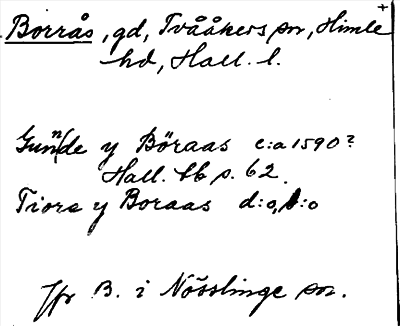 Borrås, gd, Tvååkers sn, Himle
hd, Hall. l.
Gunnde y Böraas c:a 1590?
Hall. tb s. 62.
Tiore y Boraas d:o, s:o
Jfr B. i Nösslinge sn.